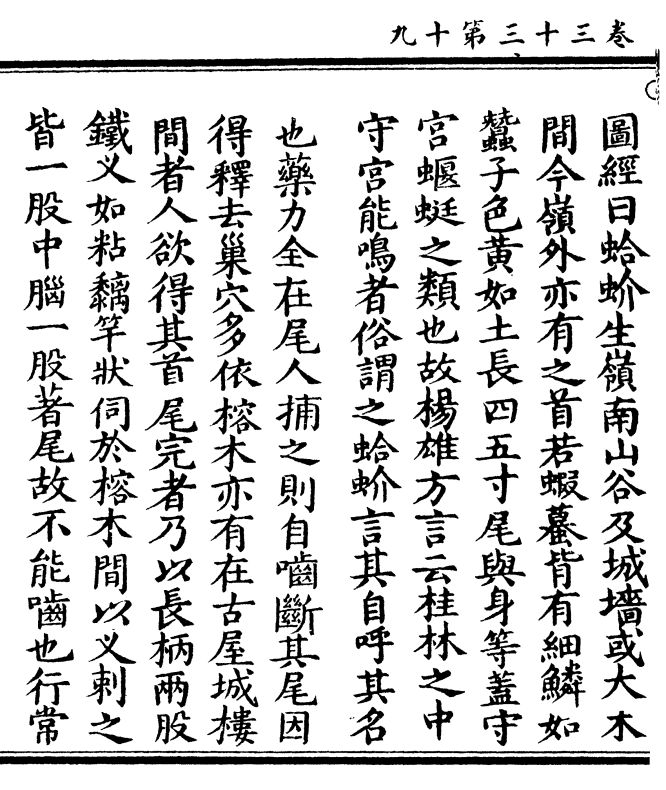 卷三十三第十九
圖經曰蛤蚧生嶺南山谷及城墻或大木
間今嶺外亦有之首若蝦蟇背有細鱗如
蠶子色黄如土長四五寸尾與身等蓋守
宫蝘蜓之類也故楊雄方言云桂林之中
守宫能鳴者俗謂之蛤蚧言其自呼其名
也藥力全在尾人捕之則自嚙斷其尾因
得釋去巢穴多依榕木亦有在古屋城樓
間者人欲得其首尾完者乃以長柄兩股
鐵义如粘黐竿狀伺於榕木間以义刺之
皆一股中腦一股著尾故不能嚙也行常